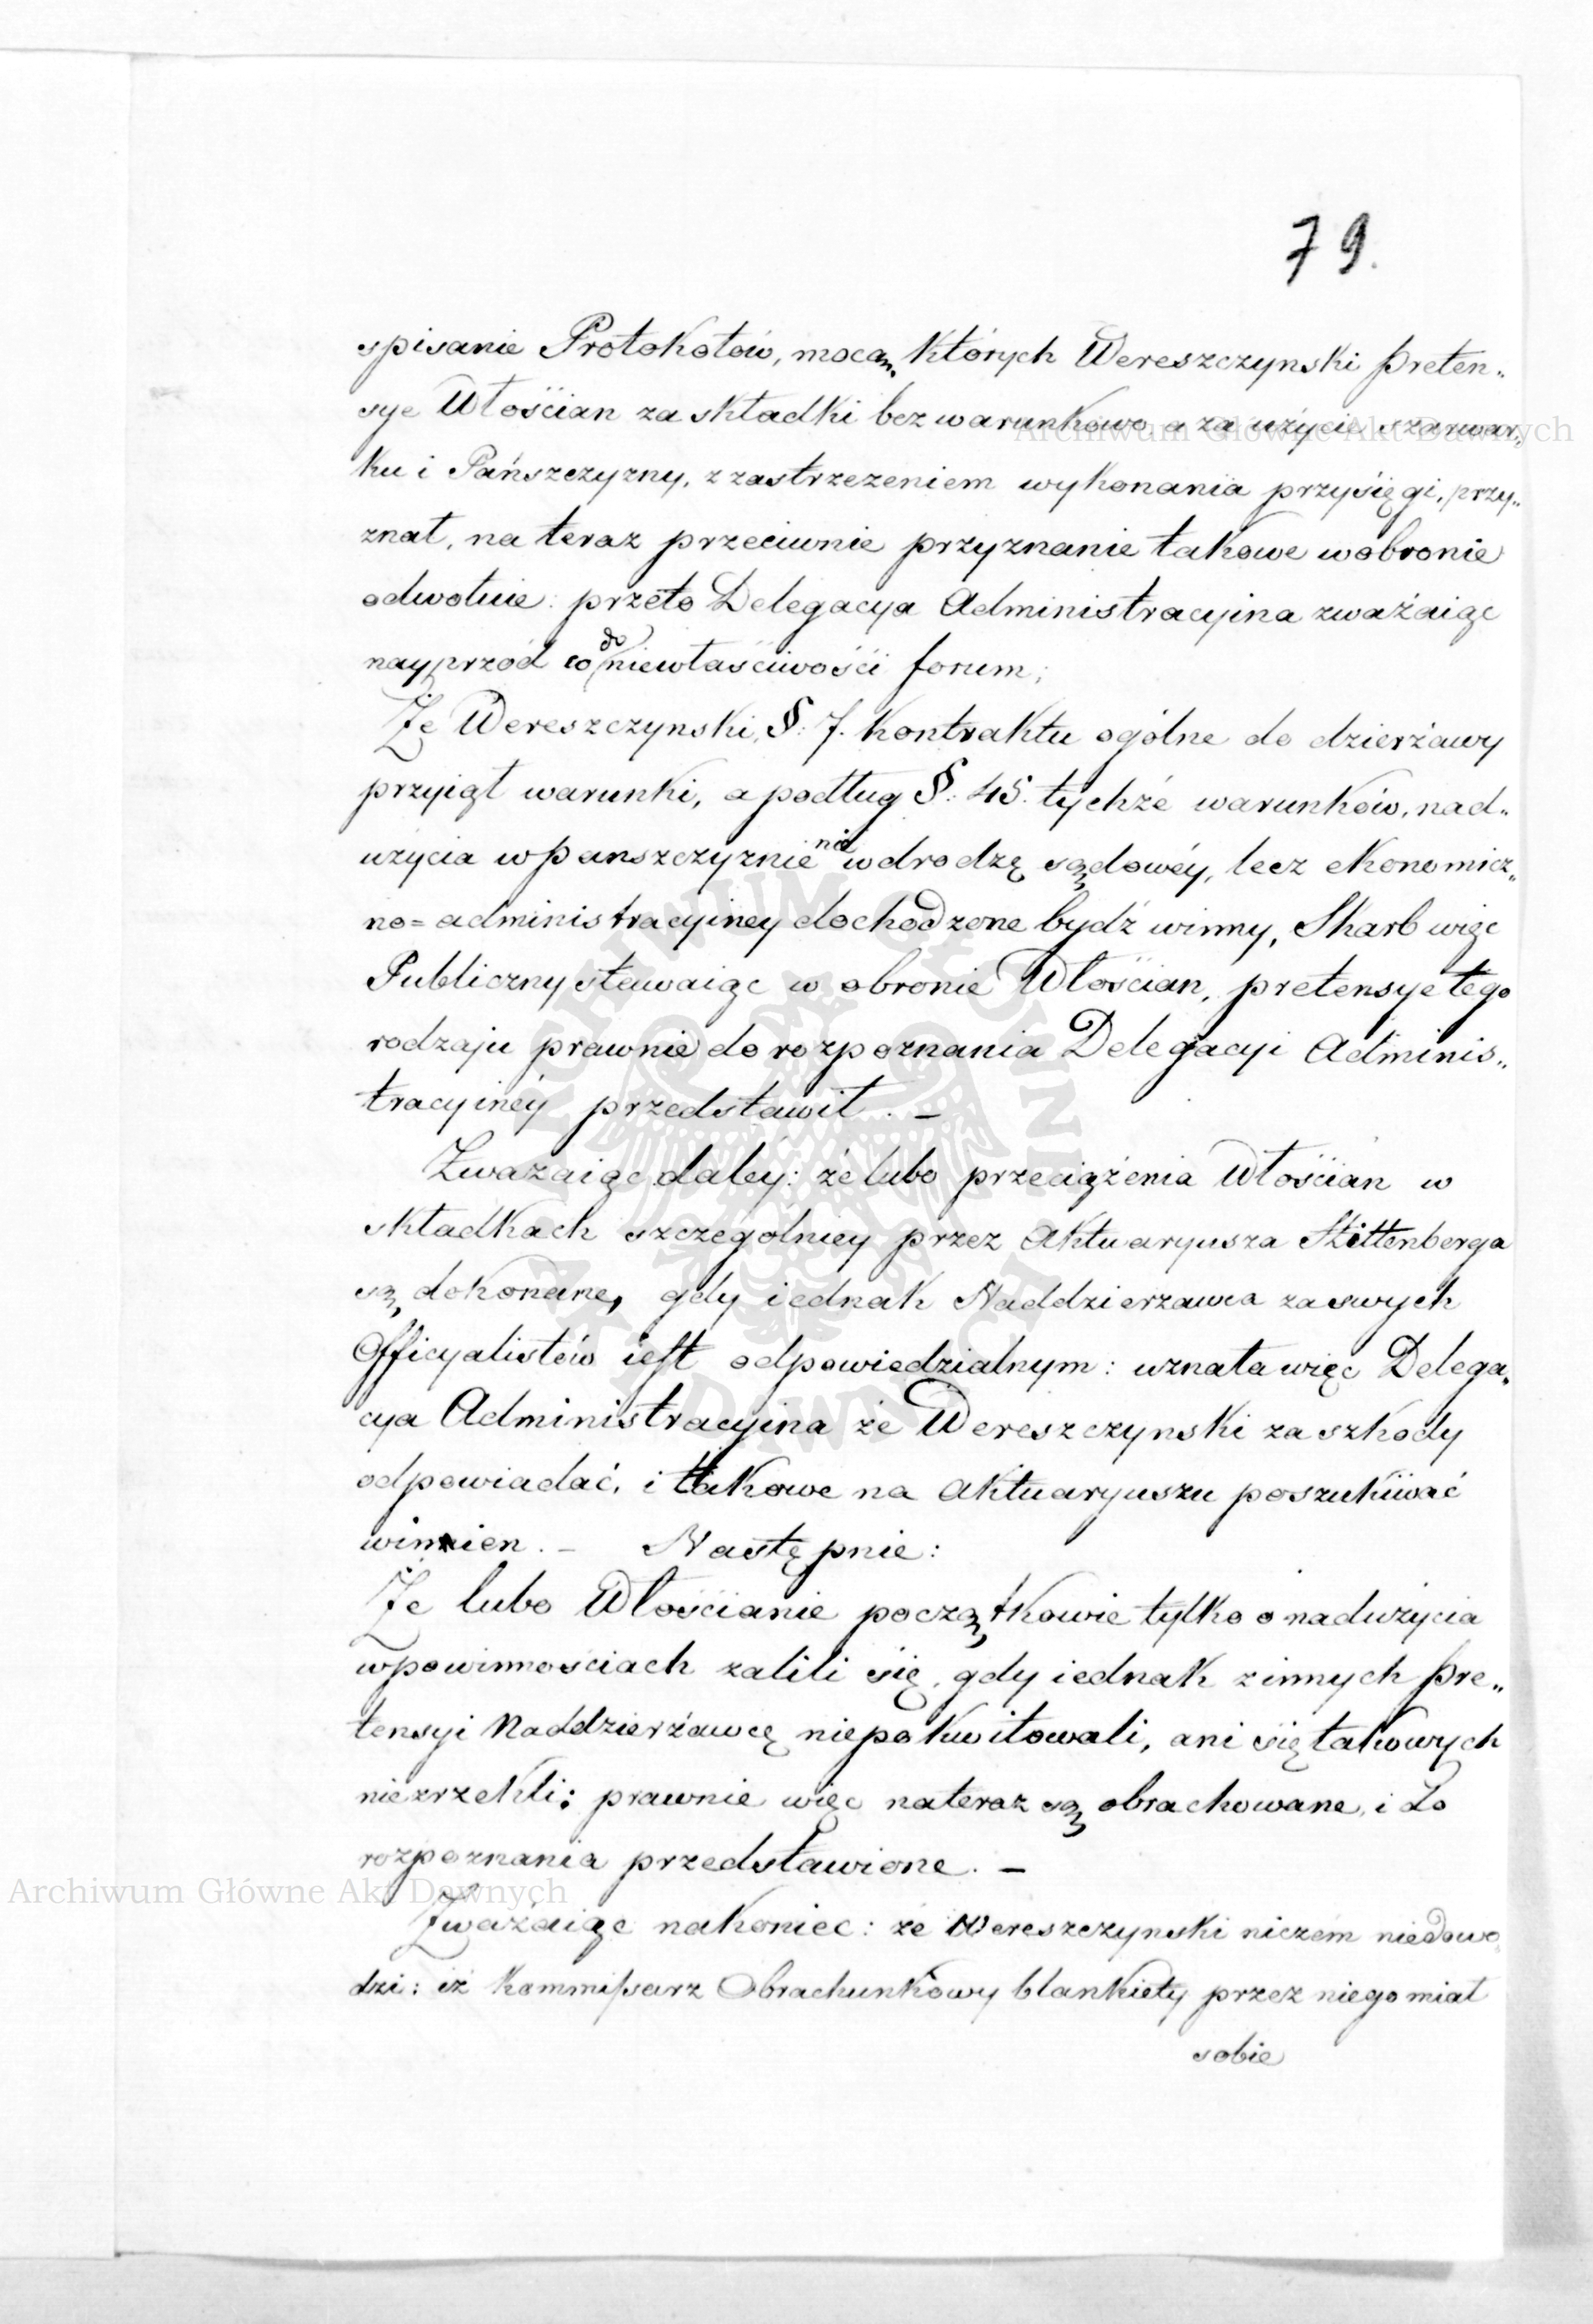 79.
spisanie Protokołów, mocą których Wereszczynski preten„
sye Włościan za składki bezwarunkowo a za użycie szarwar„
ku i Pańszczyzny, z zastrzeżeniem wykonania przysięgi, przy„
znał, na teraz przeciwnie przyznanie takowe w obronie
odwołuie: przeto Delegacya Administracyina zważaiąc
nayprzód co do niewłaściwości forum;
Że Wereszczynski, §: 7. Kontraktu ogólne do dzierżawy
przyiął warunki, a podług §: 45. tychże warunków, nad„
użycia w panszczyznie nie w drodzę sądowéy, lecz ekonomicz„
no=administracyiney dochodzone bydź winny, Skarb więc
Publiczny stawaiąc w obronie Włościan, pretensye tego
rodzaju prawnie do rozpoznania Delegacyi Adminis„
tracyinéy przedstawił. —
Zwazaiąc daléy: że lubo przeciążenia Włościan w
składkach szczególniey przez Aktuaryusza Skittenberga
są dokonane, gdy iednak Naddzierzawca za swych
Officyalistów iest odpowiedzialnym: uznała więc Delega„
cya Administracyina że Wereszczynski za szkody
odpowiadać, i takowe na Aktuaryuszu poszukiwać
winien. — Następnie:
Że lubo Włościanie początkowie tylko o nadużycia
w powinnościach żalili się, gdy iednak z innych pre„
tensyi Naddzierżawcę niepokwitowali, ani się takowych
niezrzekli; prawnie więc nateraz są obrachowane, i do
rozpoznania przedstawione. —
Zważaiąc nakoniec: że Wereszczynski niczém niedowo„
dzi: iż Kommissarz Obrachunkowy blankiety przez niego miał
sobie
Archiwum Główne Akt Dawnych
Archiwum Główne Akt Dawnych
ARCHIWUM GŁÓWNE AKT DAWNYCH